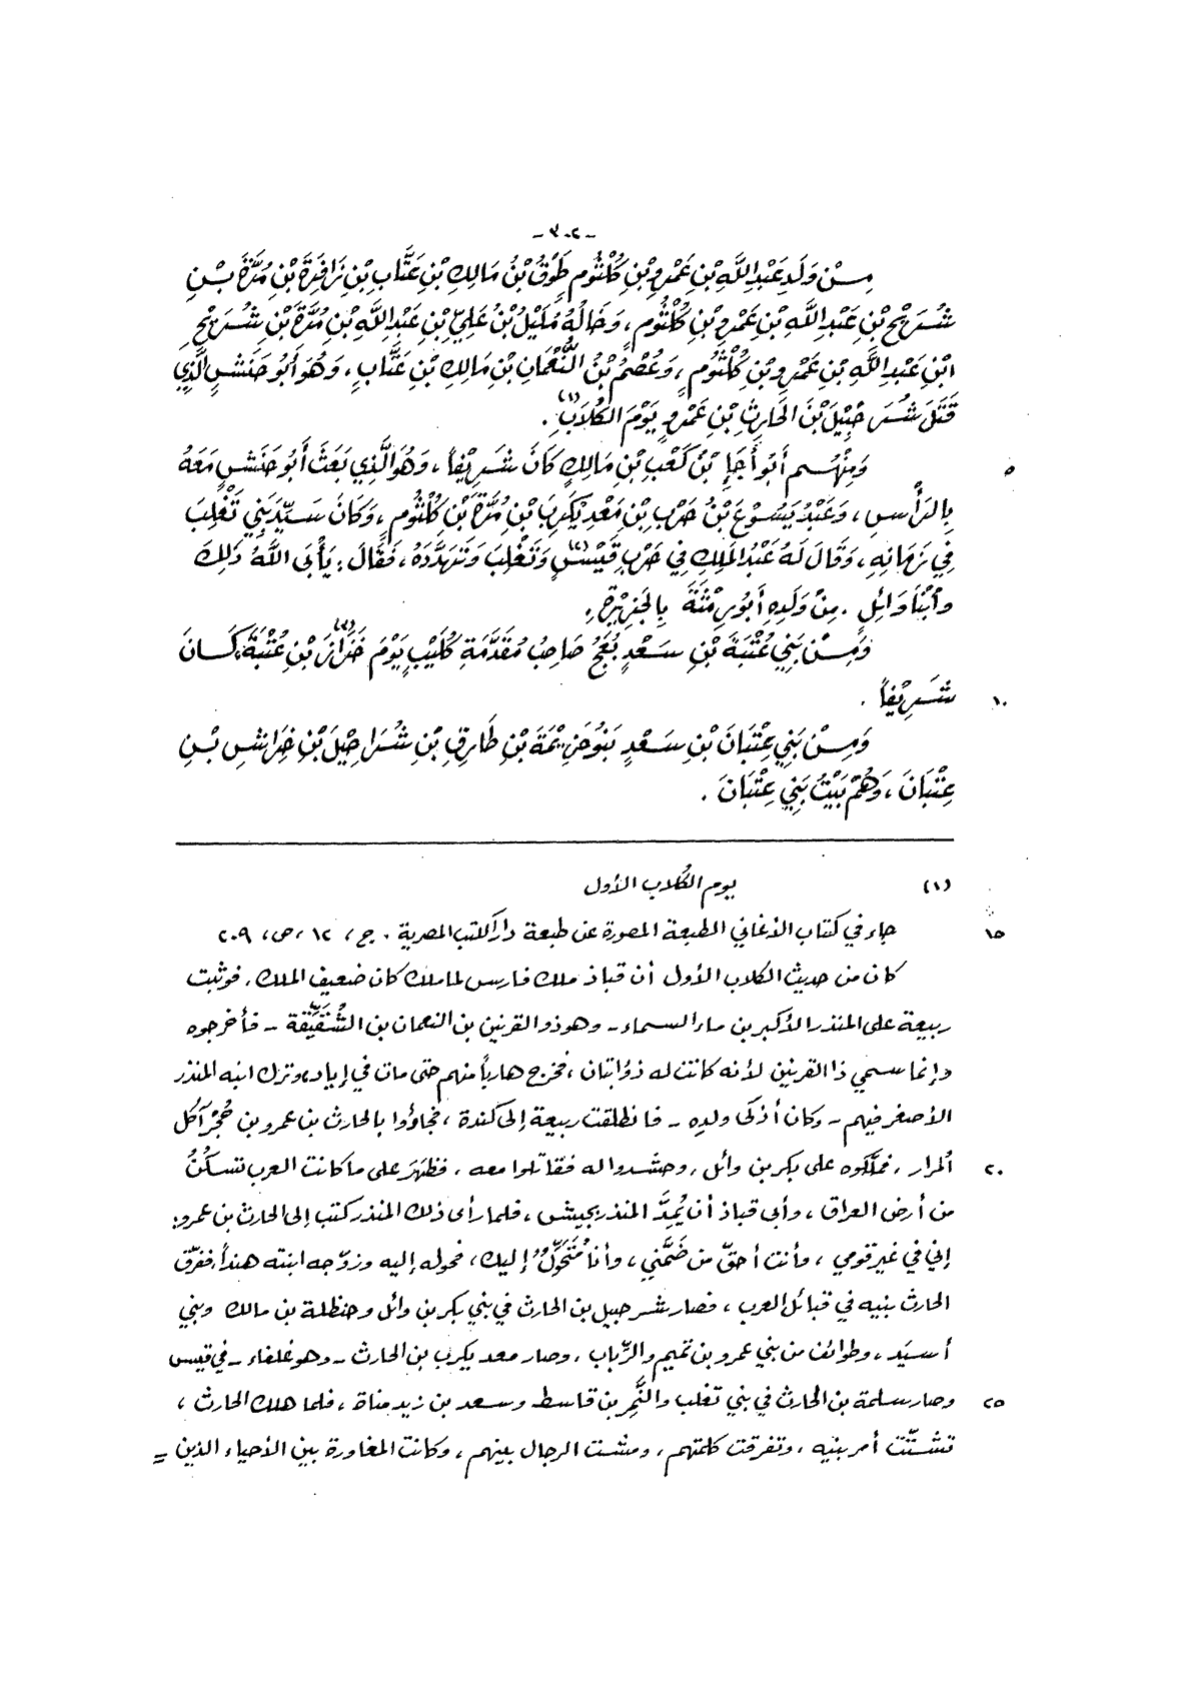 - ٣٠٢ -
مِنْ وَلَدِ عَبْدِ اللَّهِ بْنِ عَمْرِو بْنِ كُلْثُومٍ طَوْقُ بْنُ مَالِكِ بْنِ عَتَّابِ بْنِ زَافِرَةَ بْنِ مُرَّةَ بْنِ
شُرَيْحِ بْنِ عَبْدِ اللَّهِ بْنِ عَمْرِو بْنِ كُلْثُومٍ، وَخَالُهُ مُلَيْلُ بْنُ عَلِيِّ بْنِ عَبْدِ اللَّهِ بْنِ مُرَّةَ بْنِ شُرَيْحِ
ابْنِ عَبْدِ اللَّهِ بْنِ عَمْرِو بْنِ كُلْثُومٍ، وَعُصْمُ بْنُ النُّعْمَانِ بْنِ مَالِكِ بْنِ عَتَّابٍ، وَهُوَ أَبُو حَنَشٍ الَّذِي
قَتَلَ شُرَحْبِيلَ بْنَ الحَارِثِ بْنِ عَمْرٍو يَوْمَ الكُلَابِ(١).
٥ وَمِنْهُم أَبُو أَجَإِ بْنُ كَعْبِ بْنِ مَالِكٍ كَانَ شَرِيْفاً، وَهُوَ الَّذِي بَعَثَ أَبُو حَنَشٍ مَعَهُ
بِالرَّأْسِ، وَعَبْدُ يَسُوْعَ بْنُ حَرْبِ بْنِ مَعْدِيْكَرِبَ بْنِ مُرَّةَ بْنِ كُلْثُومٍ، وَكَانَ سَيِّدَ بَنِي تَغْلِبَ
فِي زَمَانِهِ، وَقَالَ لَهُ عَبْدُ المَلِكِ فِي حَرْبِ قَيْسٍ(٢) وَتَغْلِبَ وَتَهَدَّدَهُ، فَقَالَ: يَأْبَى اللَّهُ ذَلِكَ
وابْنَا وَائِلٍ. مِنْ وَلَدِهِ أَبُو رِمْثَةَ بِالجَزِيْرَةِ.
وَمِنْ بَنِي عُتْبَةَ بْنِ سَعْدٍ بُعَجُ صَاحِبُ مُقَدَّمَةِ كُلَيْبٍ يَوْمَ خَزَازَ(٣) بْنِ عُتْبَةَ، كَانَ
١٠ شَرِيْفاً.
وَمِنْ بَنِي عِتْبَانَ بْنِ سَعْدٍ بَنُو خَزِيْمَةَ بْنِ طَارِقِ بْنِ شُرَاحِيلَ بْنِ خِرَاشِ بْنِ
عِتْبَانَ، وَهُمْ بَيْتُ بَنِي عِتْبَانَ.
(١) يوم الكُلاب الأول
١٥ جاء في كتاب الأغاني الطبعة المصورة عن طبعة دار الكتب المصرية. ج، ١٢، ص، ٢٠٩
كان من حديث الكلاب الأول أن قباذ ملك فارس لما ملك كان ضعيف الملك، فوثبت
ربيعة على المنذر الأكبر بن ماء السماء - وهو ذو القرنين بن النعمان بن الشُّقَيْقَة - فأخرجوه
وإنما سمي ذا القرنين لأنه كانت له ذؤابتان، فخرج هارباً منهم حتى مات في إياد، وترك ابنه المنذر
الأصغر فيهم - وكان أذكى ولده - فانطلقت ربيعة إلى كندة، فجاؤوا بالحارث بن عمرو بن حُجْر آكل
٢٠ المرار، فملّكوه على بكر بن وائل، وحشدوا له فقاتلوا معه، فظهَرَ على ما كانت العرب تسكُنُ
من أرض العراق، وأبى قباذ أن يُمِدَّ المنذر بجيش، فلما رأى ذلك المنذر كتب إلى الحارث بن عمرو:
إني في غير قومي، وأنت أحقّ من ضَمَّني، وأنا مُتَحَوِّلٌ إليك، فحوله إليه وزوّجه ابنته هنداً، ففرّق
الحارث بنيه في قبائل العرب، فصار شرحبيل بن الحارث في بني بكر بن وائل وحنظلة بن مالك وبني
أسيّد، وطوائف من بني عمرو بن تميم والرِّباب، وصار معد يكرب بن الحارث - وهو غلفاء - في قيس
٢٥ وصار سلمة بن الحارث في بني تغلب والنَّمِر بن قاسط وسعد بن زيد مناة، فلما هلك الحارث،
تشتّت أمر بنيه، وتفرقت كلمتهم، ومشت الرجال بينهم، وكانت المغاورة بين الأحياء الذين =